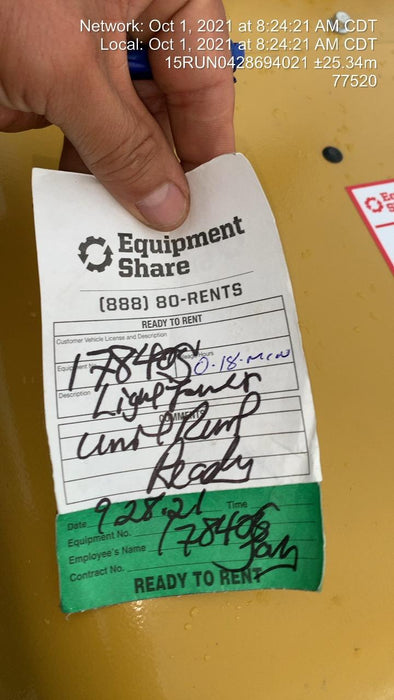 Network: Oct 1, 2021 at 8:24:21 AM CDT
Local: Oct 1, 2021 at 8:24:21 AM CDT
15RUN0428694021 ±25.34m
77520
Equipment
Share
(888) 80-RENTS
READY TO RENT
Customer Vehicle License and Description
Equipment
Hours
0.18
Description
Light Tower
COMMENTS
Unit Rent
Ready
Date 9 28.21 Time
Equipment No. 178406
Employee's Name
Contract No.
READY TO RENT